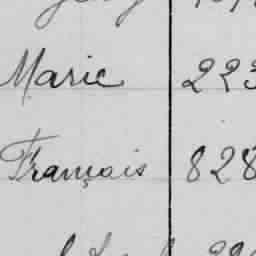 Marie 223
Français 828